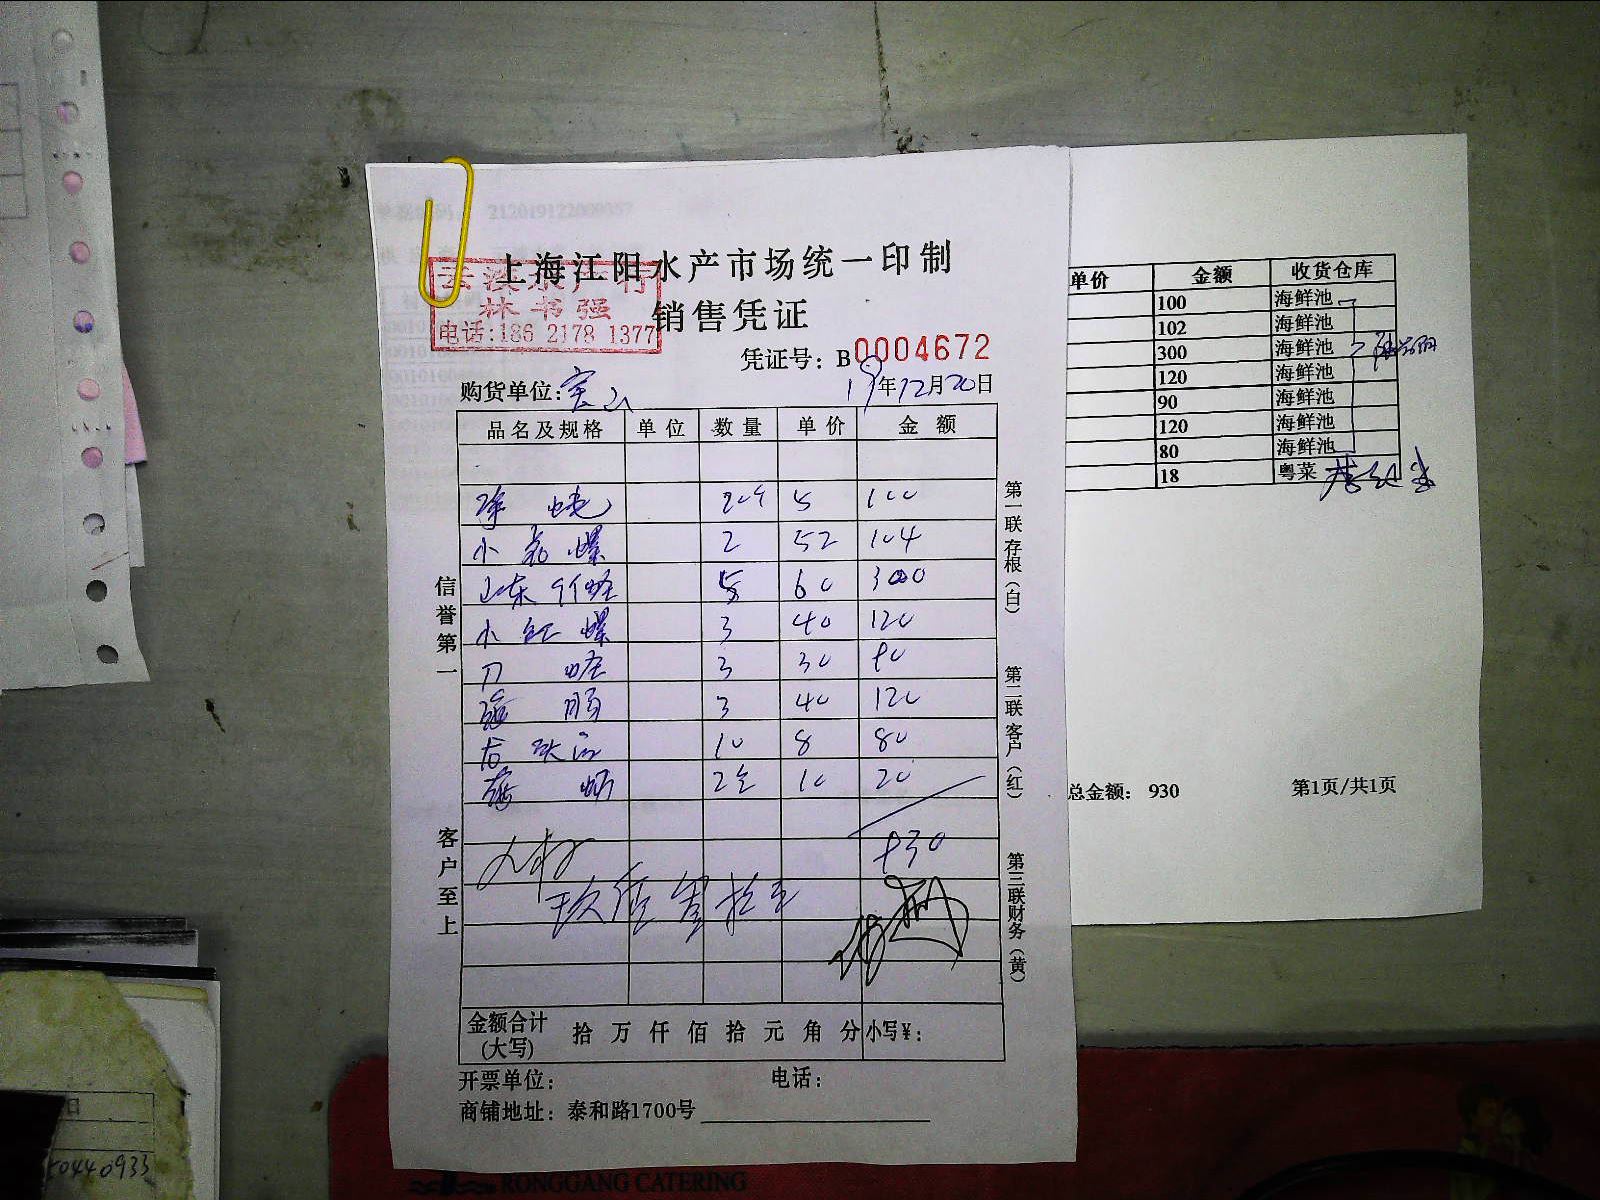 上海江阳水产市场统一印制
林书强
销售凭证
电话:186 2178 1377
凭证号: B 0004672
购货单位: 宝山 19年12月20日
品名及规格 单位 数量 单价 金额
5 100
小 螺 2 52 104
山东 蛏 5 60 300
小红螺 3 40 120
刀 蛏 3 30 90
海 肠 3 40 120
10 8 80
海 蛎 10 20
930
玖佰叁拾元
金额合计(大写) 拾 万 仟 佰 拾 元 角 分 小写¥:
开票单位: 电话:
商铺地址: 泰和路1700号
信誉第一
客户至上
第一联 存根(白)
第二联 客户(红)
第三联 财务(黄)
单价 金额 收货仓库
100 海鲜池
102 海鲜池
300 海鲜池
120 海鲜池
90 海鲜池
120 海鲜池
80 海鲜池
18 粤菜
总金额: 930 第1页/共1页
0440933
RONGGANG CATERING